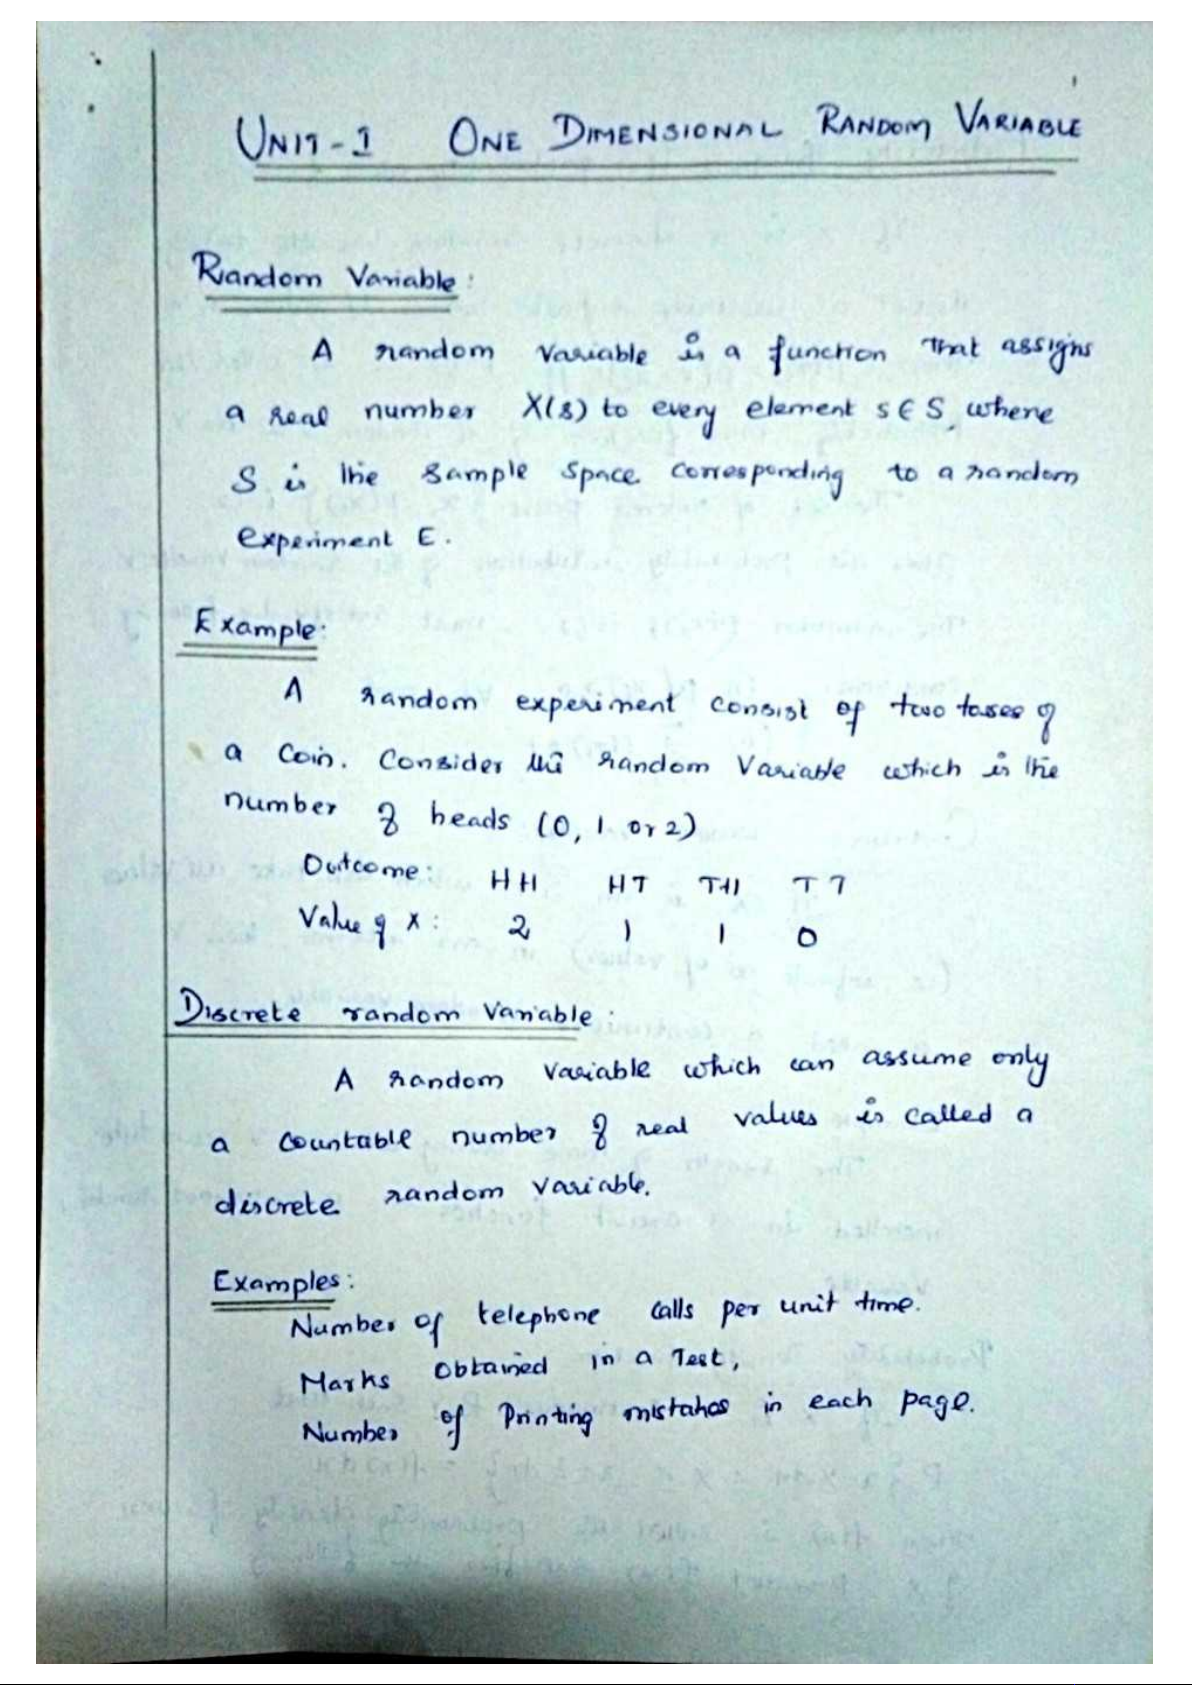 UNIT-1 ONE DIMENSIONAL RANDOM VARIABLE
Random Variable:
A random variable is a function that assigns
a real number X(s) to every element s∈S, where
S is the sample space corresponding to a random
experiment E.
Example:
A random experiment consist of two tosses of
a coin. Consider the random variable which is the
number of heads (0, 1 or 2)
Outcome: HH HT TH TT
Value of X: 2 1 1 0
Discrete random Variable:
A random variable which can assume only
a countable number of real values is called a
discrete random variable.
Examples:
Number of telephone calls per unit time.
Marks obtained in a Test,
Number of Printing mistakes in each page.